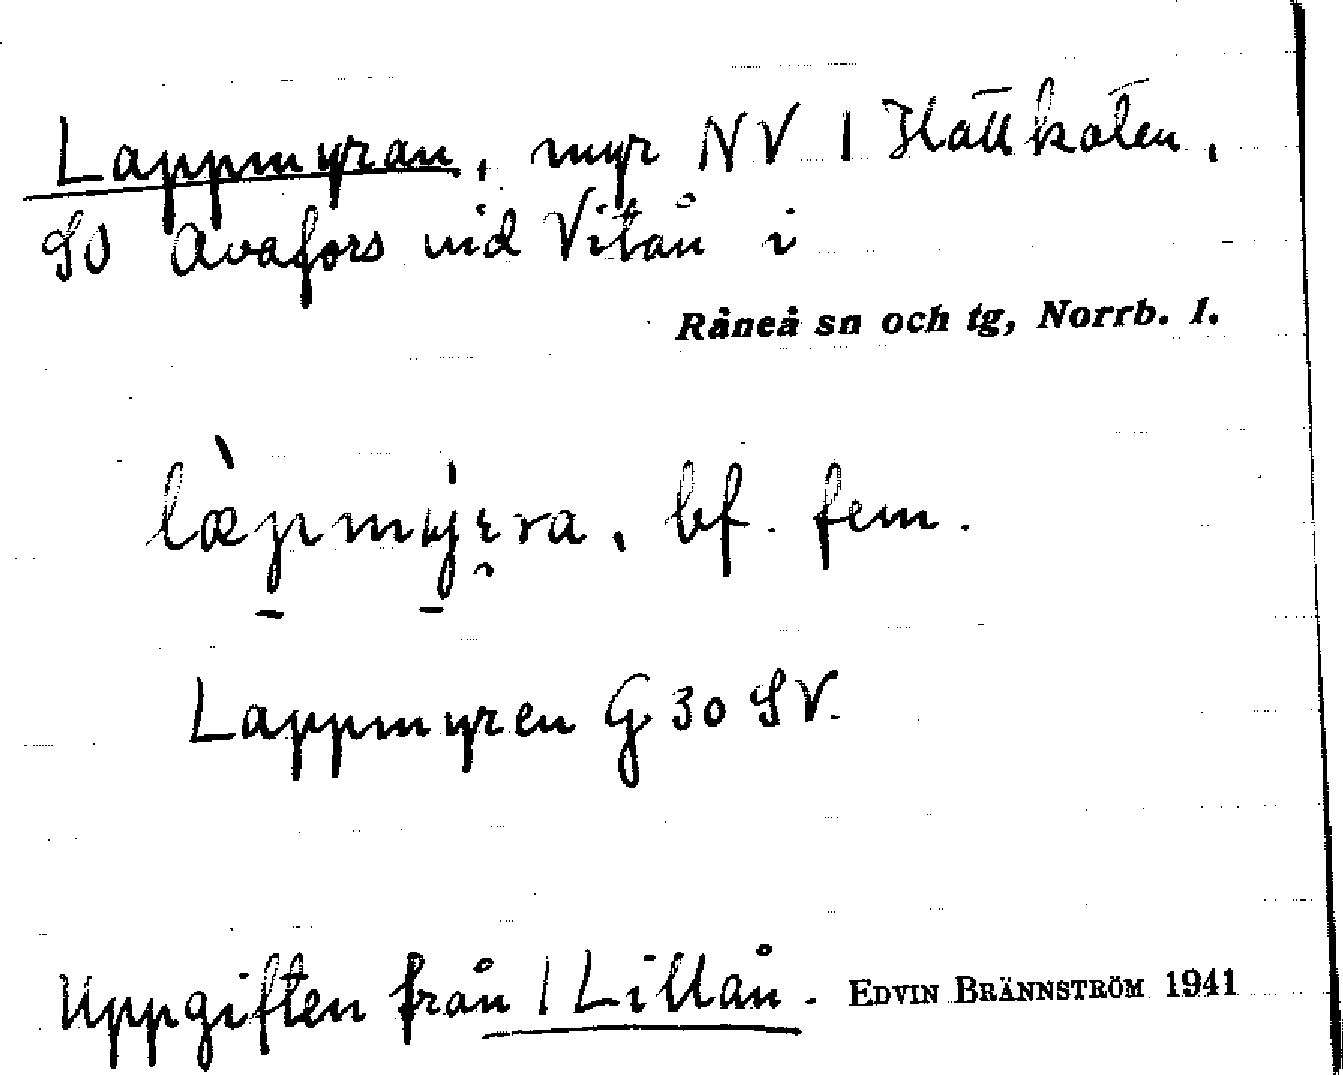 Lappmyran, myr NV / Hällkåten,
SO Avafors vid Vitån i
Råneå sn och tg, Norrb. l.
bf. fem.
Lappmyren G 30 SV.
Uppgiften från / Lillån. EDVIN BRÄNNSTRÖM 1941